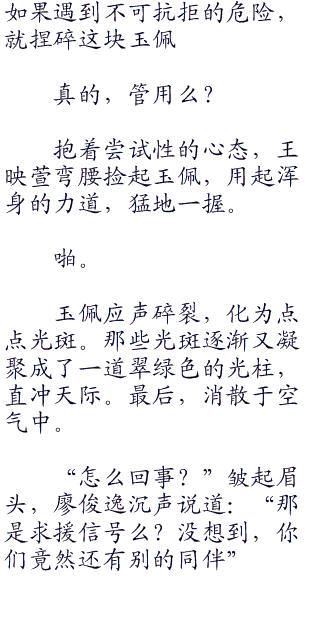 如果遇到不可抗拒的危险，
就捏碎这块玉佩
真的，管用么？
抱着尝试性的心态，王
映萱弯腰捡起玉佩，用起浑
身的力道，猛地一握。
啪。
玉佩应声碎裂，化为点
点光斑。那些光斑逐渐又凝
聚成了一道翠绿色的光柱，
直冲天际。最后，消散于空
气中。
“怎么回事？”皱起眉
头，廖俊逸沉声说道：“那
是求援信号么？没想到，你
们竟然还有别的同伴”